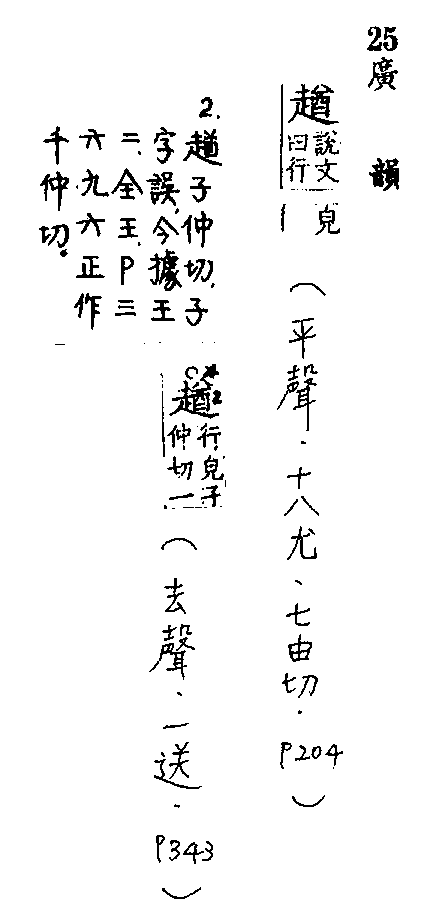 25 廣韻
趥 說文
曰行
皃 (平聲．十八尤、七由切．P204)
2. 趥子仲切,子
字誤,今據王
二、全王、P三
六九六正作
千仲切。
趥2 行皃子
仲切一 (去聲．一送．P343)